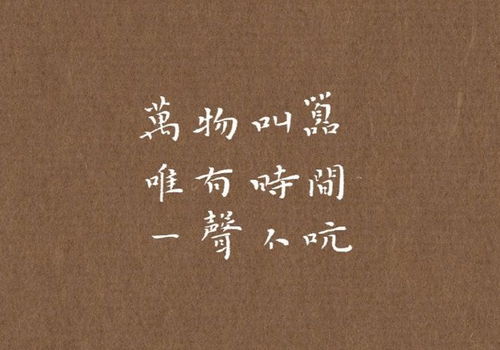 萬物叫囂
唯有時間
一聲不吭